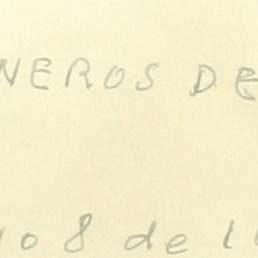 NEROS DE
no 8 de l